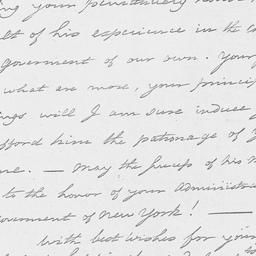 ing your penitentiary
lt of his experience in the
government of our own. Your
what are more, your princip
ings will I am sure induce
fford him the patronage of
me. — May the success of his
to the honor of your Administra
overnment of New York! —
with best wishes for your